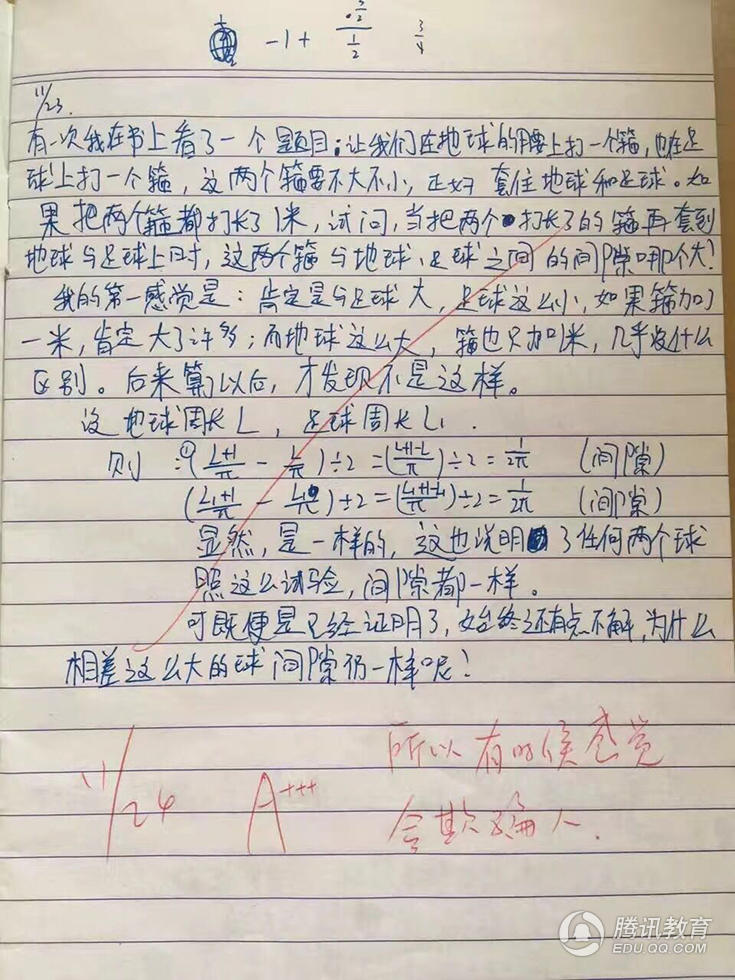 -1+ 3/2 / 1/2 3/4
11/23.
有一次我在书上看了一个题目:让我们在地球的腰上打一个箍,也在足
球上打一个箍,这两个箍要不大不小,正好套住地球和足球。如
果把两个箍都打长了1米,试问,当把两个打长了的箍再套到
地球与足球上时,这两个箍与地球、足球之间的间隙哪个大?
我的第一感觉是:肯定是与足球大,足球这么小,如果箍加
一米,肯定大了许多;而地球这么大,箍也只加1米,几乎没什么
区别。后来算了以后,才发现不是这样。
设地球周长L,足球周长L₁.
则:(L+1/π - L/π)÷2=(L+1-L/π)÷2=1/2π (间隙)
(L₁+1/π - L₁/π)÷2=(L₁+1-L₁/π)÷2=1/2π (间隙)
显然,是一样的,这也说明了任何两个球
照这么试验,间隙都一样。
可既便是已经证明了,始终还有点不解,为什么
相差这么大的球间隙仍一样呢!
11/24 A+++ 所以有时候感觉
会欺骗人.
腾讯教育
EDU.QQ.COM